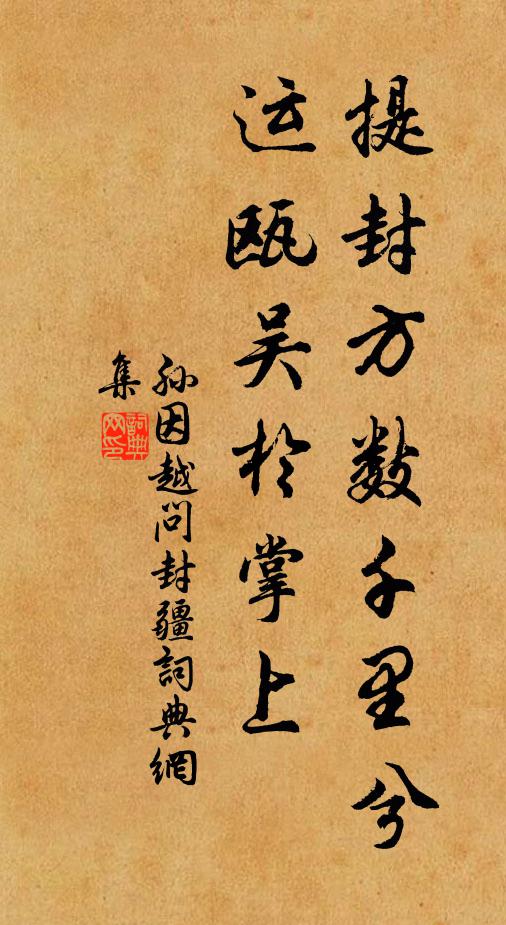 提封方数千里兮
运瓯吴於掌上
孙因越问封疆詞典網
集
詞典网印